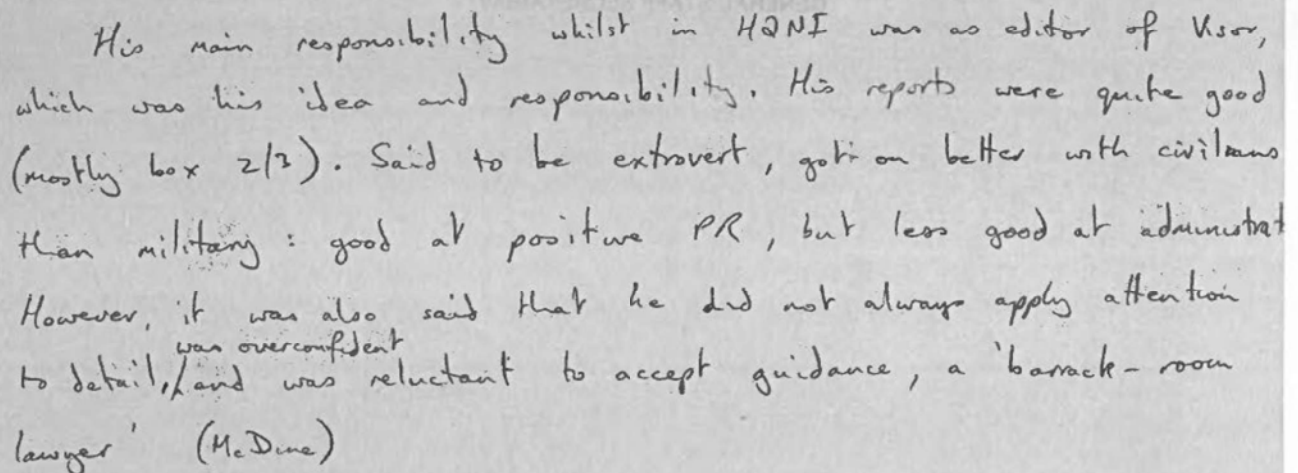 His main responsibility whilst in HQNI was as editor of Visor,
which was his idea and responsibility. His reports were quite good
(mostly box 2/3). Said to be extrovert, got on better with civilians
than military: good at positive PR, but less good at administrat
However, it was also said that he did not always apply attention
was overconfident
to detail, / and was reluctant to accept guidance, a 'barrack-room
lawyer' (McDine)